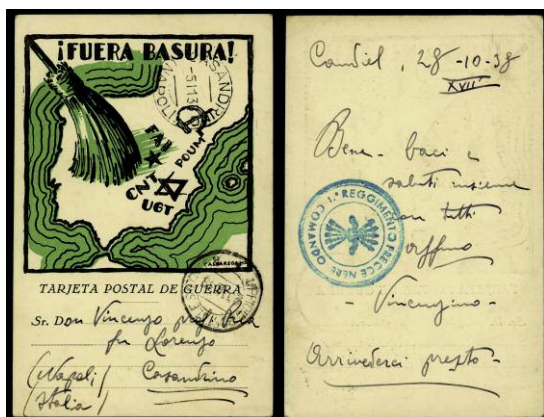 ¡FUERA BASURA!
FAI
POUM
CNT
UGT
TARJETA POSTAL DE GUERRA
Sr. Don Vincenzo
fu Lorenzo
(Napoli) Casandrino
(Italia)
28-10-38
XVII
Bene - baci e
saluti insieme
con tutti
- Vincenzino -
Arrivederci presto -
REGGIMENTO FRECCE NERE
COMANDO